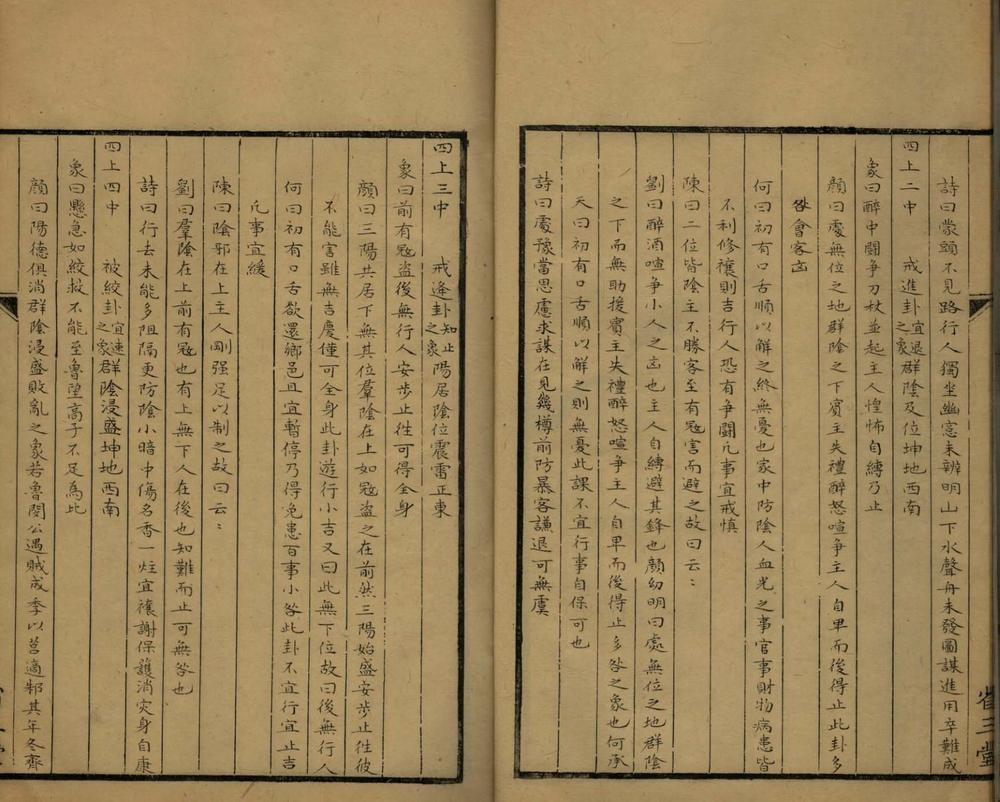 詩曰蒙頭不見路行人獨坐幽窓未辨明山下水聲舟未發圖謀進用卒難成
四上二中 戒進卦宜退之象群陰及位坤地西南
象曰醉中鬪爭刀杖並起主人惶怖自縛乃止
顏曰處無位之地群陰之下賓主失禮醉怒喧爭主人自卑而後得止此卦多
咎會客凶
何曰初有口舌順以解之終無憂也家中防陰人血光之事官事財物病患皆
不利修禳則吉行人恐有爭鬪凡事宜戒慎
陳曰二位皆陰主不勝客至有寇害而避之故曰云〻
劉曰醉酒喧爭小人之凶也主人自縛避其鋒也顏幼明曰處無位之地群陰
之下而無助援賓主失禮醉怒喧爭主人自卑而後得止多咎之象也何承
天曰初有口舌順以解之則無憂此課不宜行事自保可也
詩曰處豫當思慮求謀在見幾樽前防暴客謙退可無虞
省三堂
四上三中 戒逢卦知止之象陽居陰位震雷正東
象曰前有寇盜後無行人安步止徃可得全身
顏曰三陽共居下無其位羣陰在上如寇盜之在前然三陽始盛安步止徃彼
不能害雖無吉慶僅可全身此卦遊行小吉又曰此無下位故曰後無行人
何曰初有口舌欲還鄉邑且宜暫停乃得免患百事小咎此卦不宜行宜止吉
凡事宜緩
陳曰陰邪在上主人剛强足以制之故曰云〻
劉曰羣陰在上前有寇也有上無下人在後也知難而止可無咎也
詩曰行去未能多阻隔更防陰小暗中傷名香一炷宜禳謝保護消灾身自康
四上四中 被絞卦宜速之象群陰浸盛坤地西南
象曰懸急如絞救不能至魯望高子不足為比
顏曰陽德俱消群陰浸盛敗亂之象若魯閔公遇賊成季以莒適邾其年冬齊